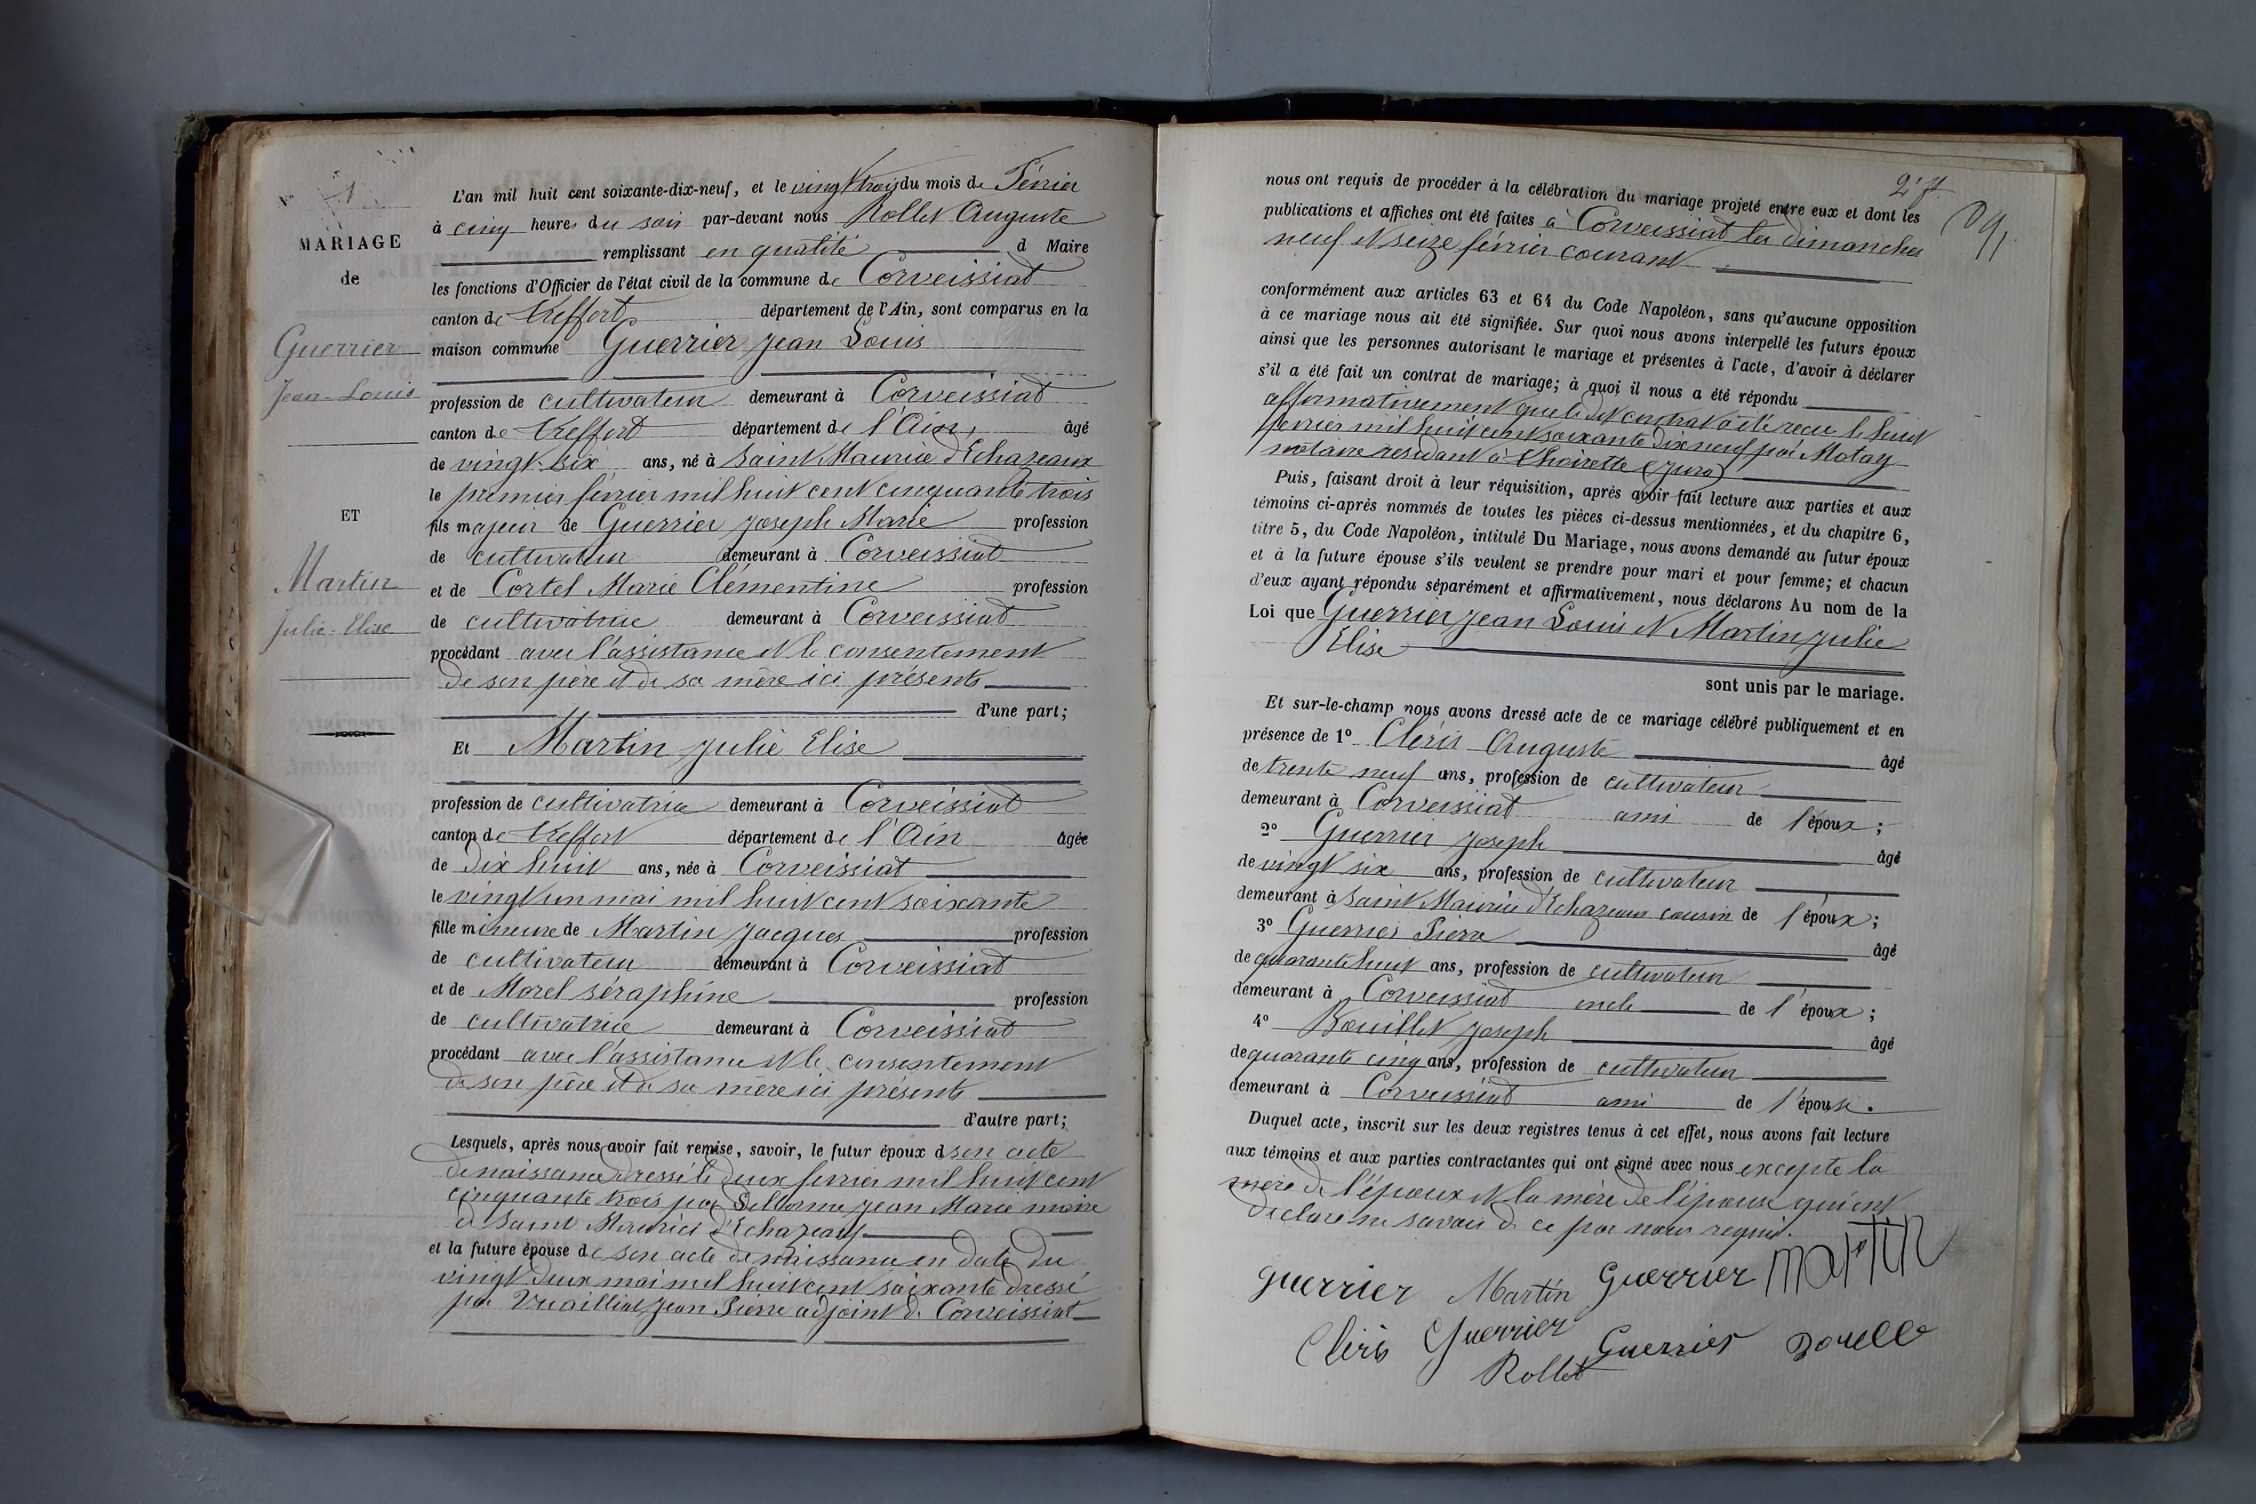 N° 1
MARIAGE
de
Guerrier
Jean-Louis
ET
Martin
Julie-Elise
L'an mil huit cent soixante-dix-neuf, et le vingt trois du mois de Février
à cinq heures du soir par-devant nous Rollet Auguste
remplissant en qualité d Maire
les fonctions d'Officier de l'état civil de la commune de Corveissiat
canton de Treffort département de l'Ain, sont comparus en la
maison commune Guerrier Jean Louis
profession de cultivateur demeurant à Corveissiat
canton de Treffort département de l'Ain, âgé
de vingt-six ans, né à Saint Maurice d'Echazeaux
le premier février mil huit cent cinquante trois
fils majeur de Guerrier Joseph Marie profession
de cultivateur demeurant à Corveissiat
et de Cortel Marie Clémentine profession
de cultivatrice demeurant à Corveissiat
procédant avec l'assistance et le consentement
de son père et de sa mère ici présents
d'une part;
Et Martin Julie Elise
profession de cultivatrice demeurant à Corveissiat
canton de Treffort département de l'Ain âgée
de dix huit ans, née à Corveissiat
le vingt un mai mil huit cent soixante
fille mineure de Martin Jacques profession
de cultivateur demeurant à Corveissiat
et de Morel Séraphine profession
de cultivatrice demeurant à Corveissiat
procédant avec l'assistance et le consentement
de son père et de sa mère ici présents
d'autre part;
Lesquels, après nous avoir fait remise, savoir, le futur époux d son acte
de naissance dressé le deux février mil huit cent
cinquante trois par Delorme Jean Marie maire
de Saint Maurice d'Echazeaux
et la future épouse de son acte de naissance en date du
vingt deux mai mil huit cent soixante dressé
par Vuailliat Jean Pierre adjoint de Corveissiat
27
nous ont requis de procéder à la célébration du mariage projeté entre eux et dont les
publications et affiches ont été faites à Corveissiat les dimanches
neuf et seize février courant
conformément aux articles 63 et 64 du Code Napoléon, sans qu'aucune opposition
à ce mariage nous ait été signifiée. Sur quoi nous avons interpellé les futurs époux
ainsi que les personnes autorisant le mariage et présentes à l'acte, d'avoir à déclarer
s'il a été fait un contrat de mariage; à quoi il nous a été répondu
affirmativement que le dit contrat a été recu le huit
février mil huit cent soixante dix neuf par Motay
notaire résidant à Thoirette (Jura)
Puis, faisant droit à leur réquisition, après avoir fait lecture aux parties et aux
témoins ci-après nommés de toutes les pièces ci-dessus mentionnées, et du chapitre 6,
titre 5, du Code Napoléon, intitulé Du Mariage, nous avons demandé au futur époux
et à la future épouse s'ils veulent se prendre pour mari et pour femme; et chacun
d'eux ayant répondu séparément et affirmativement, nous déclarons Au nom de la
Loi que Guerrier Jean Louis et Martin Julie
Elise
sont unis par le mariage.
Et sur-le-champ nous avons dressé acte de ce mariage célébré publiquement et en
présence de 1° Cléris Auguste âgé
de trente neuf ans, profession de cultivateur
demeurant à Corveissiat ami de l'époux;
2° Guerrier Joseph âgé
de vingt six ans, profession de cultivateur
demeurant à Saint Maurice d'Echazeaux cousin de l'époux;
3° Guerrier Pierre âgé
de quarante huit ans, profession de cultivateur
demeurant à Corveissiat oncle de l'époux;
4° Bouillet Joseph âgé
de quarante cinq ans, profession de cultivateur
demeurant à Corveissiat ami de l'épouse.
Duquel acte, inscrit sur les deux registres tenus à cet effet, nous avons fait lecture
aux témoins et aux parties contractantes qui ont signé avec nous excepté la
mère de l'époux et la mère de l'épouse qui ont
déclaré ne savoir de ce par nous requis.
guerrier Martin Guerrier martin
Cléris Guerrier Guerrier
Rollet